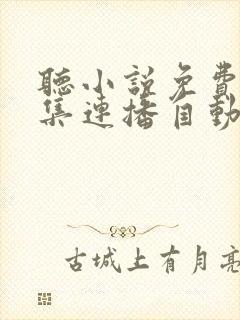 聽小說免費
集連播自動
古城上有月亮